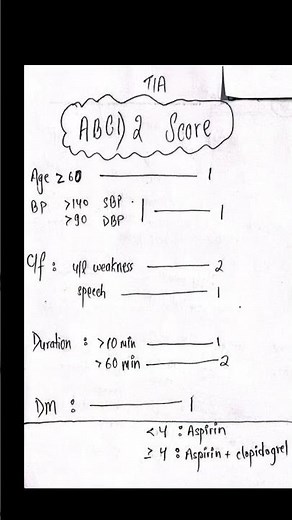 TIA
ABCD2 Score
Age ≥60 — 1
BP >140 SBP
>90 DBP — 1
C/f : u/l weakness — 2
speech — 1
Duration : >10 min — 1
>60 min — 2
DM : — 1
<4 : Aspirin
≥4 : Aspirin + clopidogrel